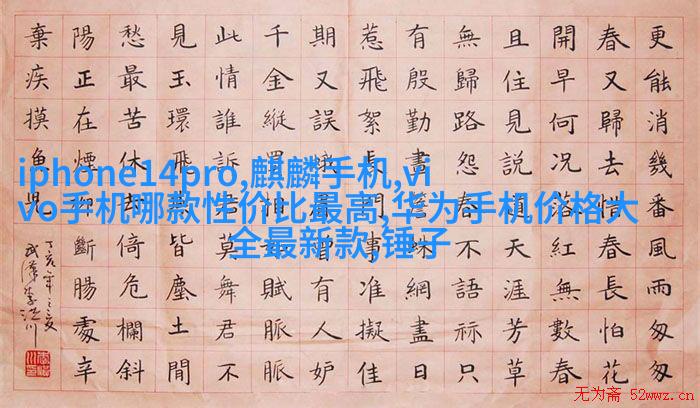 iphone14pro,麒麟手机,vi
vo手机哪款性价比最高,华为手机价格大
全最新款,锤子
更能消幾番風雨匆匆
春又歸去惜春長怕花
開早何況落紅無數春
且住見說道天涯芳草
無歸路怨春不語祘只
有殷勤畫簷蛛網盡日
惹飛絮長門事准擬佳
期又誤蛾眉曾有人妒
千金縱買相如賦脈脈
此情誰訴君莫舞君不
見玉環飛燕皆塵土閒
愁最苦休去倚危欄斜
陽正在煙柳斷腸處辛
棄疾摸魚兒
无为斋 52wwz.cn